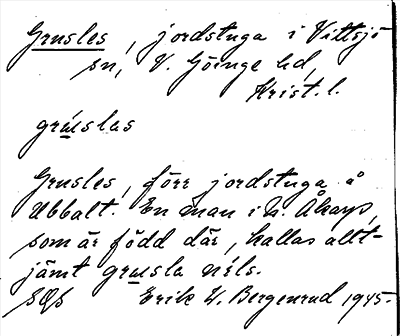 Grusles, jordstuga i Vittsjö
sn, V. Göinge hd,
Krist. l.
grúslas
Grusles, förr jordstuga å
Ubbalt. En man i N. Åkarp,
som är född där, kallas allt-
jämt grusla nils.
Erik W. Bergenrud 1945.